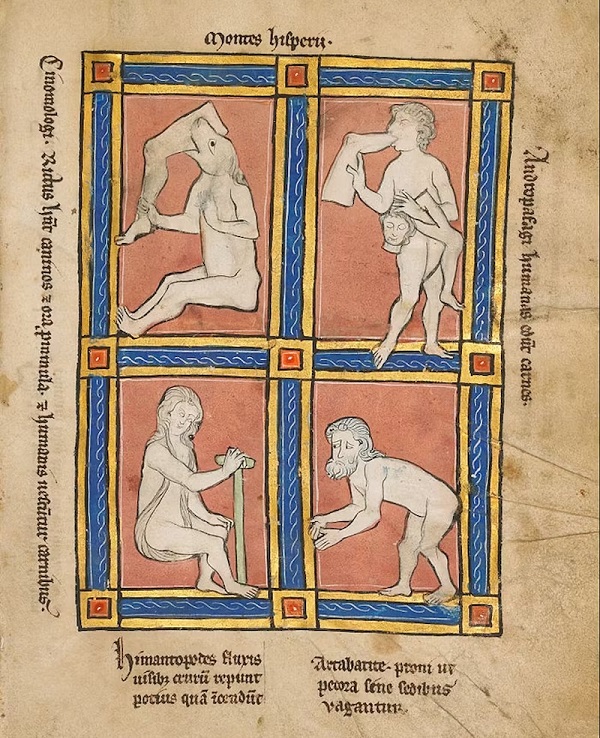 Montes hisperii.
Cinomologi. Rictus hñt caninos ⁊ ora, ⁊ humanis uescũtur carnibus.
Andropafagi humanas edũt carnes.
Himantopodes fluxis
uisibꝫ crurũ repunt
potius quã ĩcedũt
Artabatite. proni ut
pecora sine sedibus
vagantur.